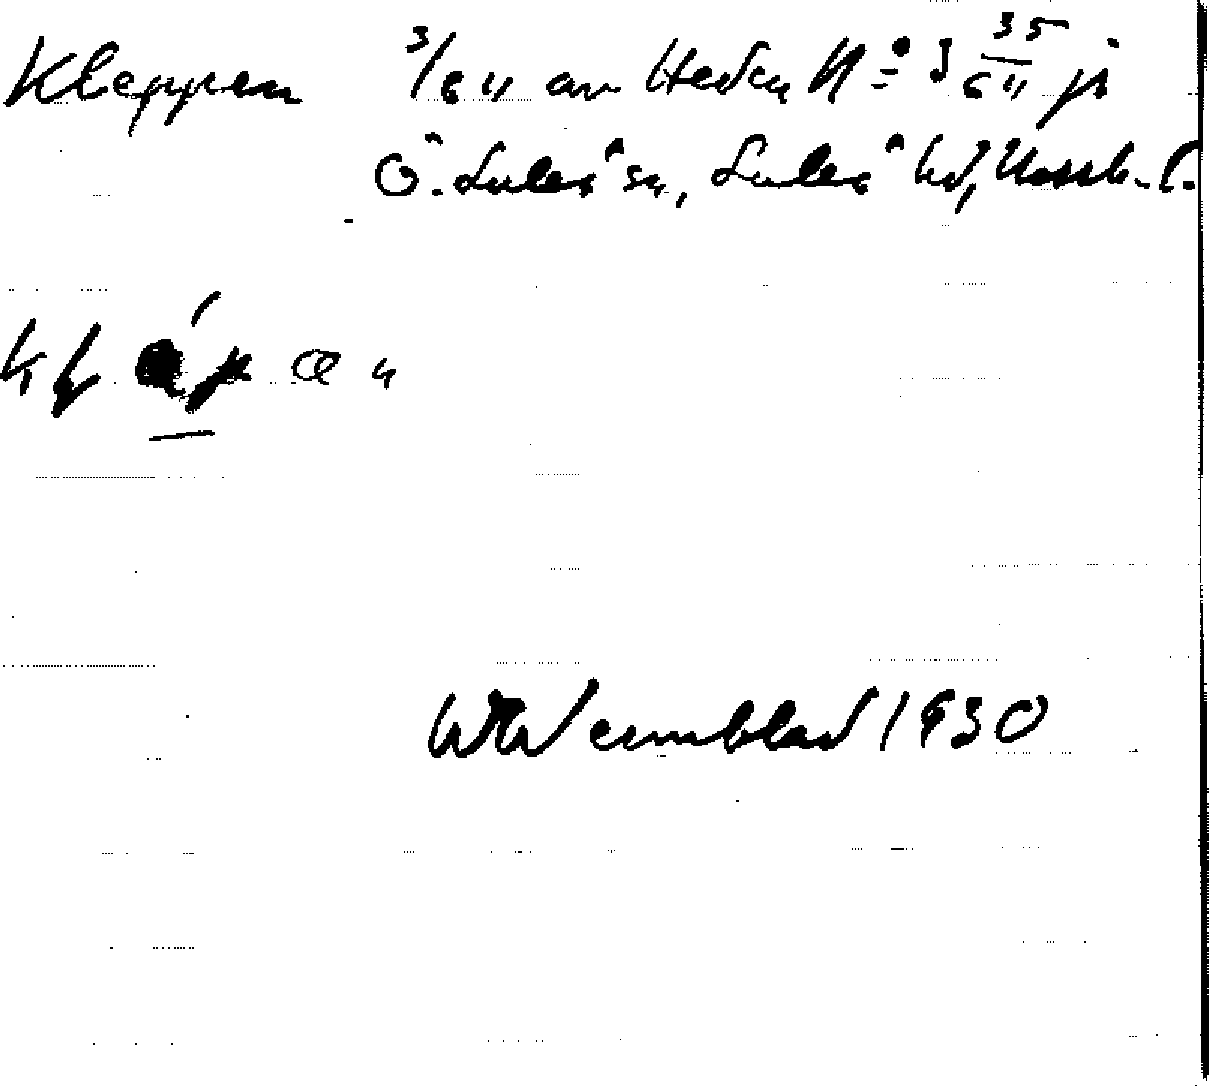 Kleppen 3/64 av Heden Nº 3 35/64 ji
Ö. Luleå sn, Luleå hd, Norrb. l.
W Wennblad 1930